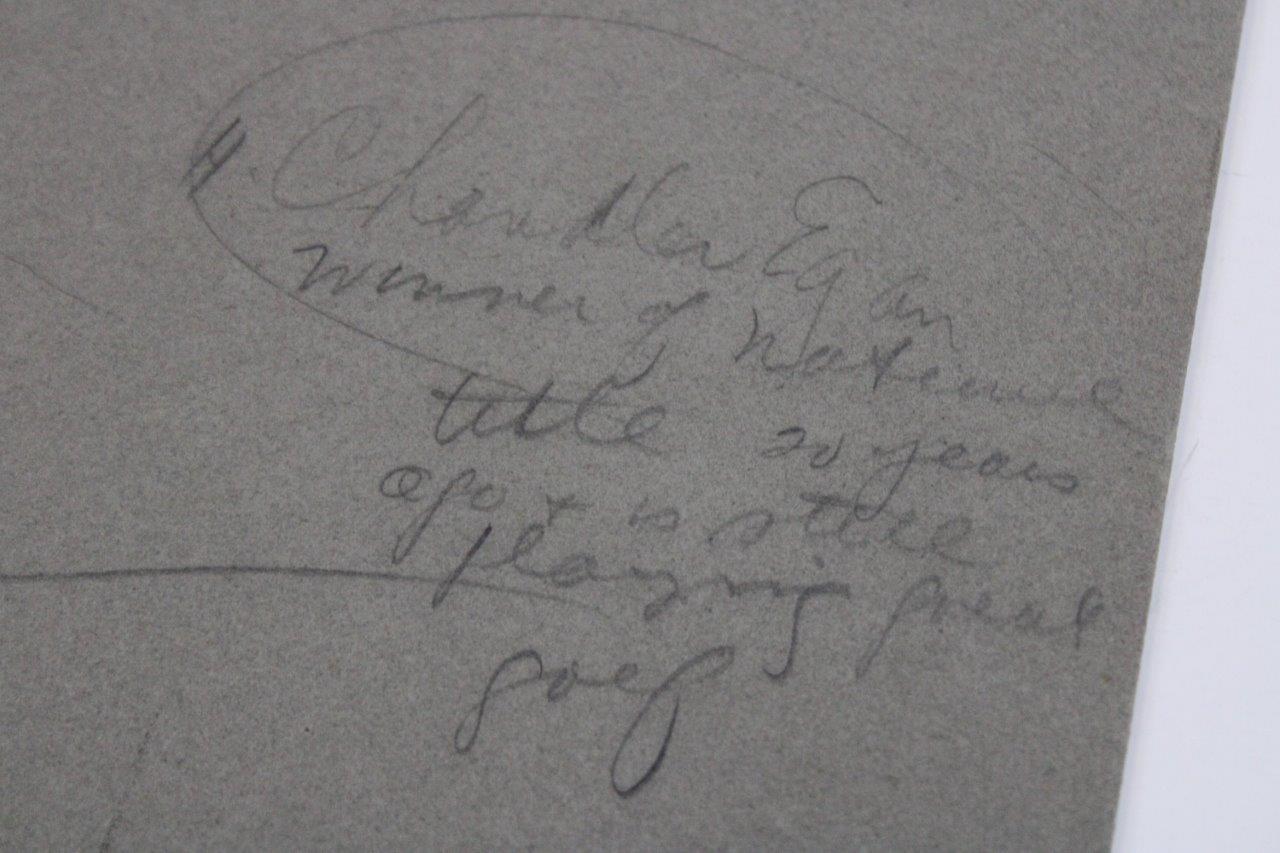 H. Chandler Egan
winner of National
title 20 years
ago + is still
playing great
golf